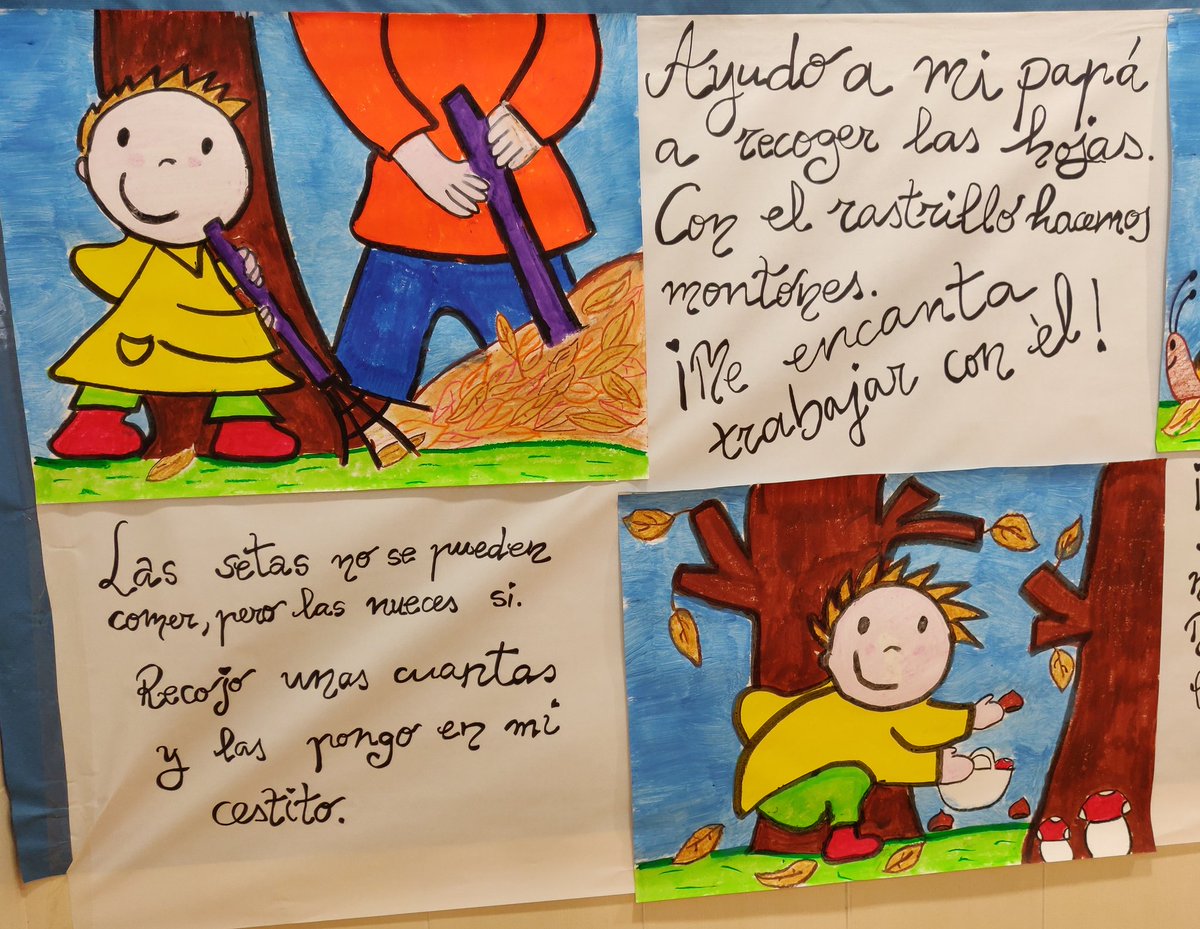 Ayudo a mi papá
a recoger las hojas.
Con el rastrillo hacemos
montones.
¡Me encanta
trabajar con èl!
Las setas no se pueden
comer, pero las nueces si.
Recojo unas cuantas
y las pongo en mi
cestito.